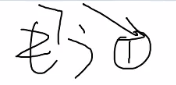 もう①